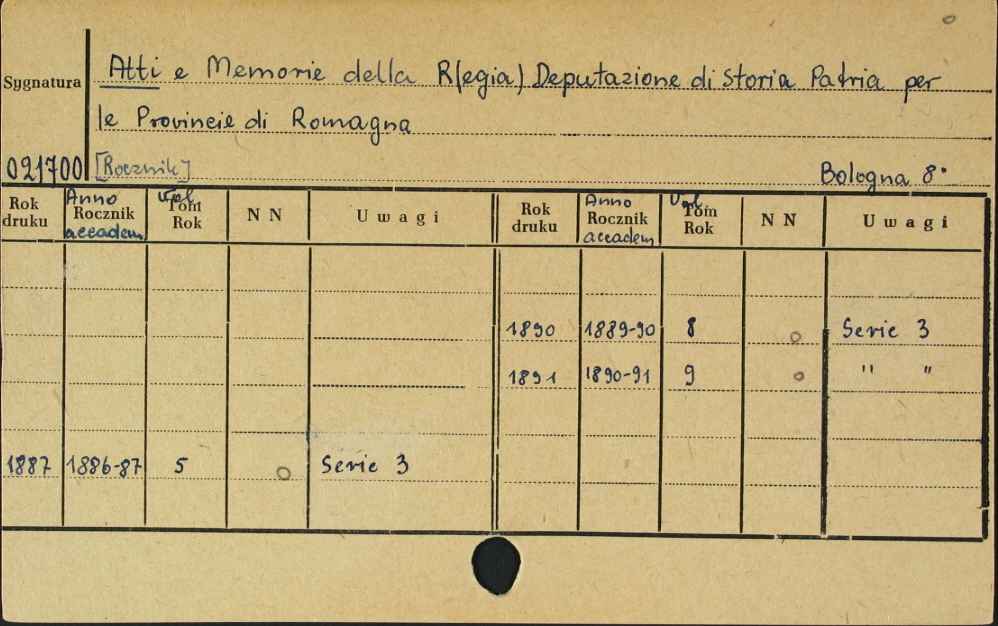 Sygnatura
Atti e Memorie della R(egia) Deputazione di Storia Patria per
le Provincie di Romagna
021700 [Rocznik] Bologna 8°
Rok druku Anno Rocznik accadem. Vol. Tom Rok NN Uwagi Rok druku Anno Rocznik accadem. Vol. Tom Rok NN Uwagi
1890 1889-90 8 o Serie 3
1891 1890-91 9 o " "
1887 1886-87 5 o Serie 3